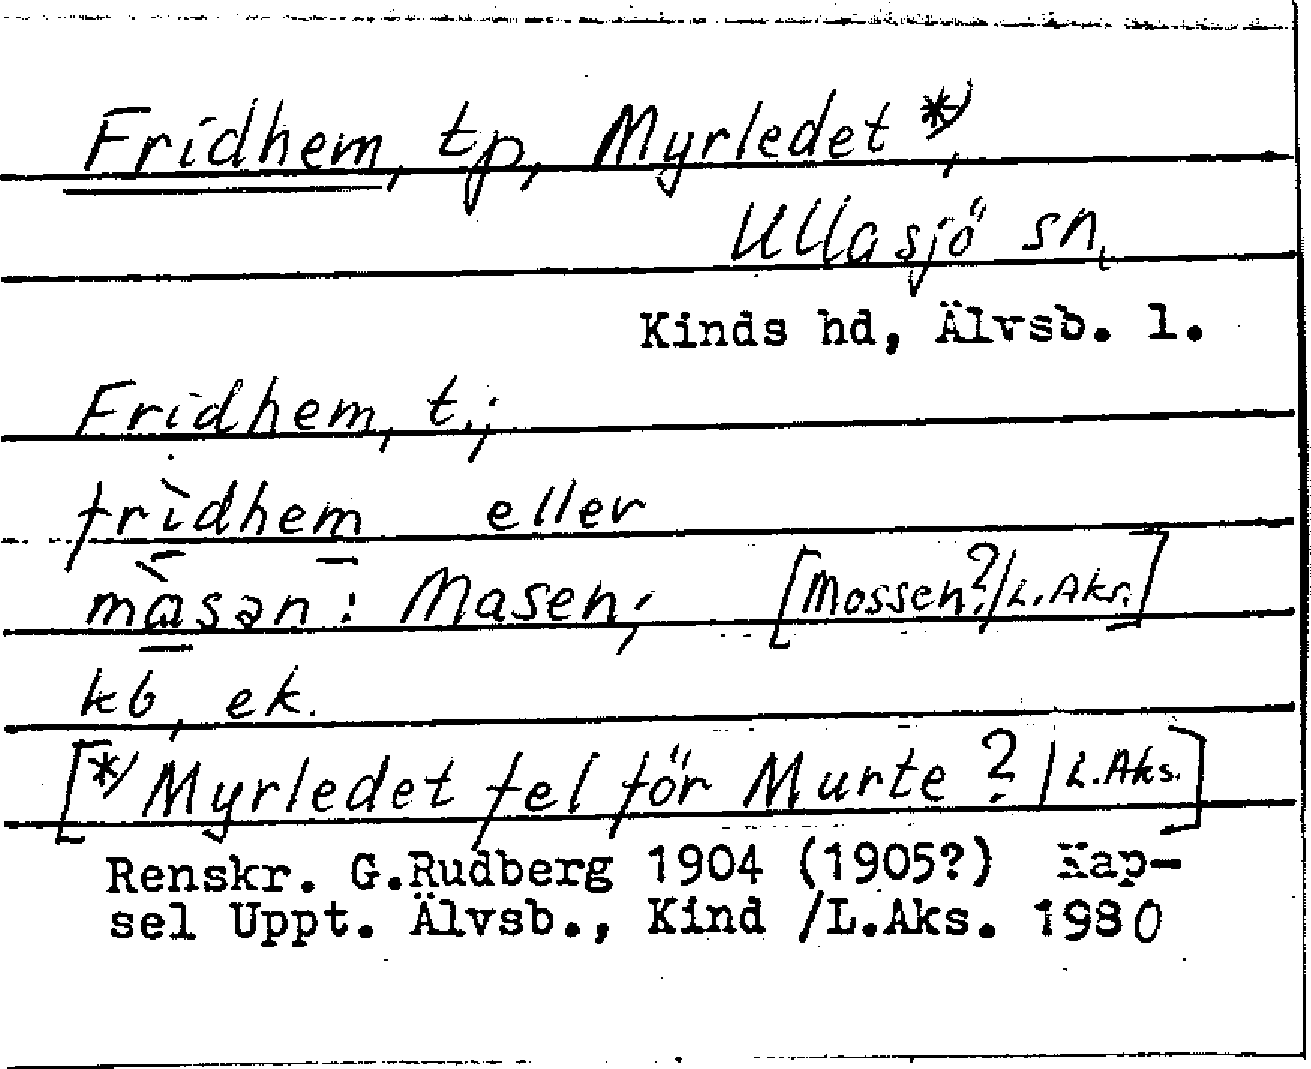 Fridhem, tp, Myrledet *),
Ullasjö sn,
Kinds hd, Älvsb. l.
Fridhem, t.;
frìdhem eller
màsən: Masen; [Mossen?/L.Aks.]
kb, ek.
[*) Myrledet fel för Murte? / L.Aks.]
Renskr. G.Rudberg 1904 (1905?) Kap-
sel Uppt. Älvsb., Kind /L.Aks. 1980